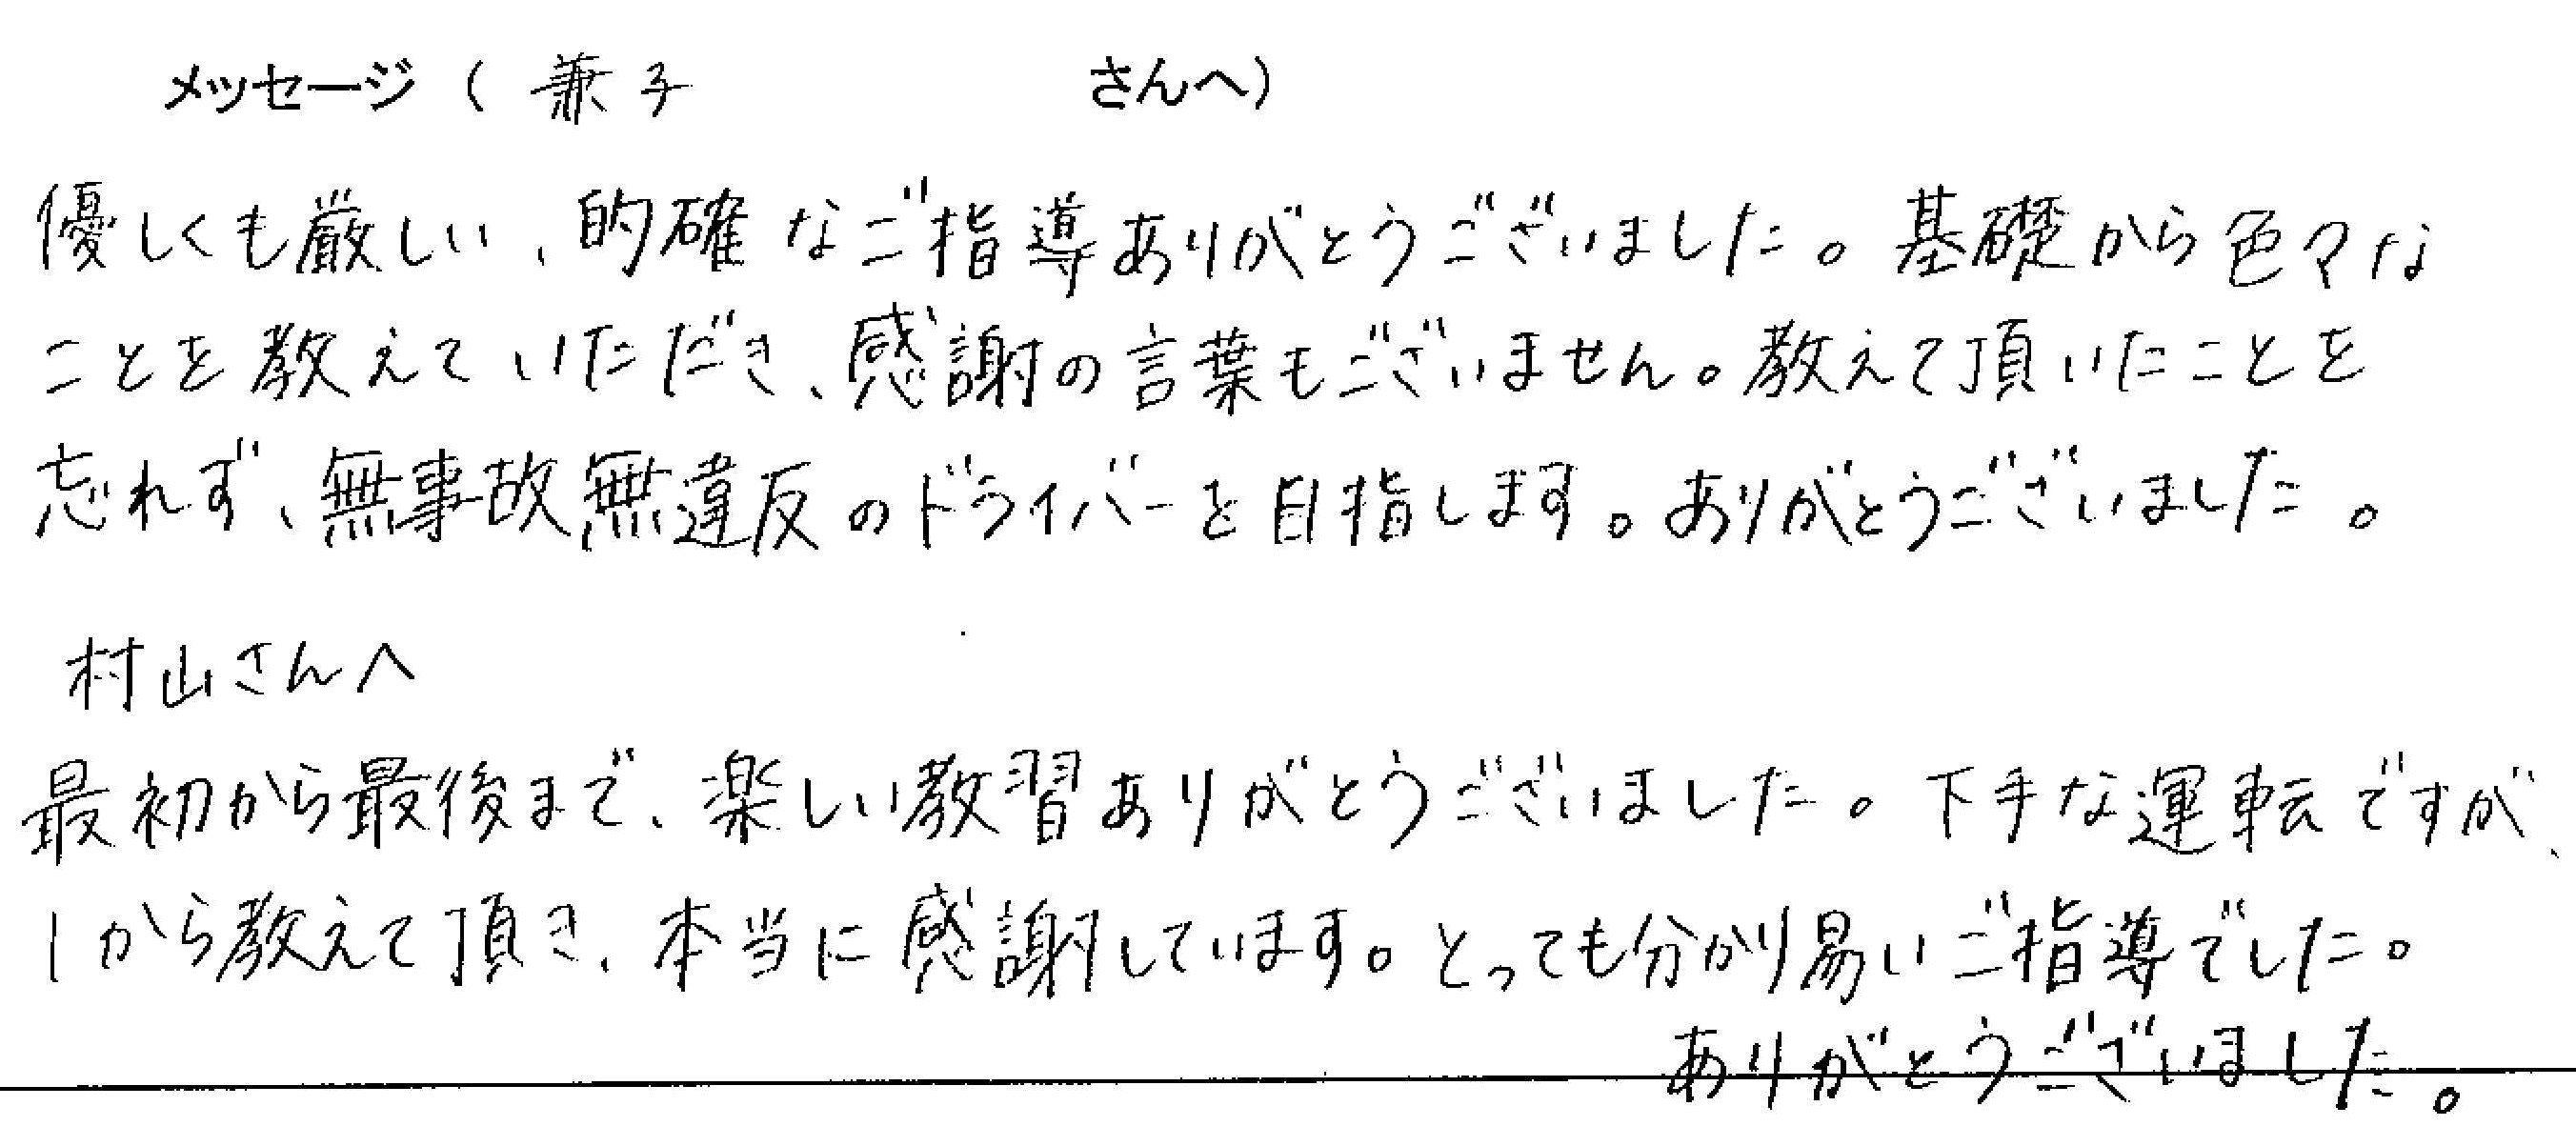 メッセージ（ 兼子 さんへ）
優しくも厳しい、的確なご指導ありがとうございました。基礎から色々な
ことを教えていただき、感謝の言葉もございません。教えて頂いたことを
忘れず、無事故無違反のドライバーを目指します。ありがとうございました。
村山さんへ
最初から最後まで、楽しい教習ありがとうございました。下手な運転ですが、
1から教えて頂き、本当に感謝しています。とっても分かり易いご指導でした。
ありがとうございました。